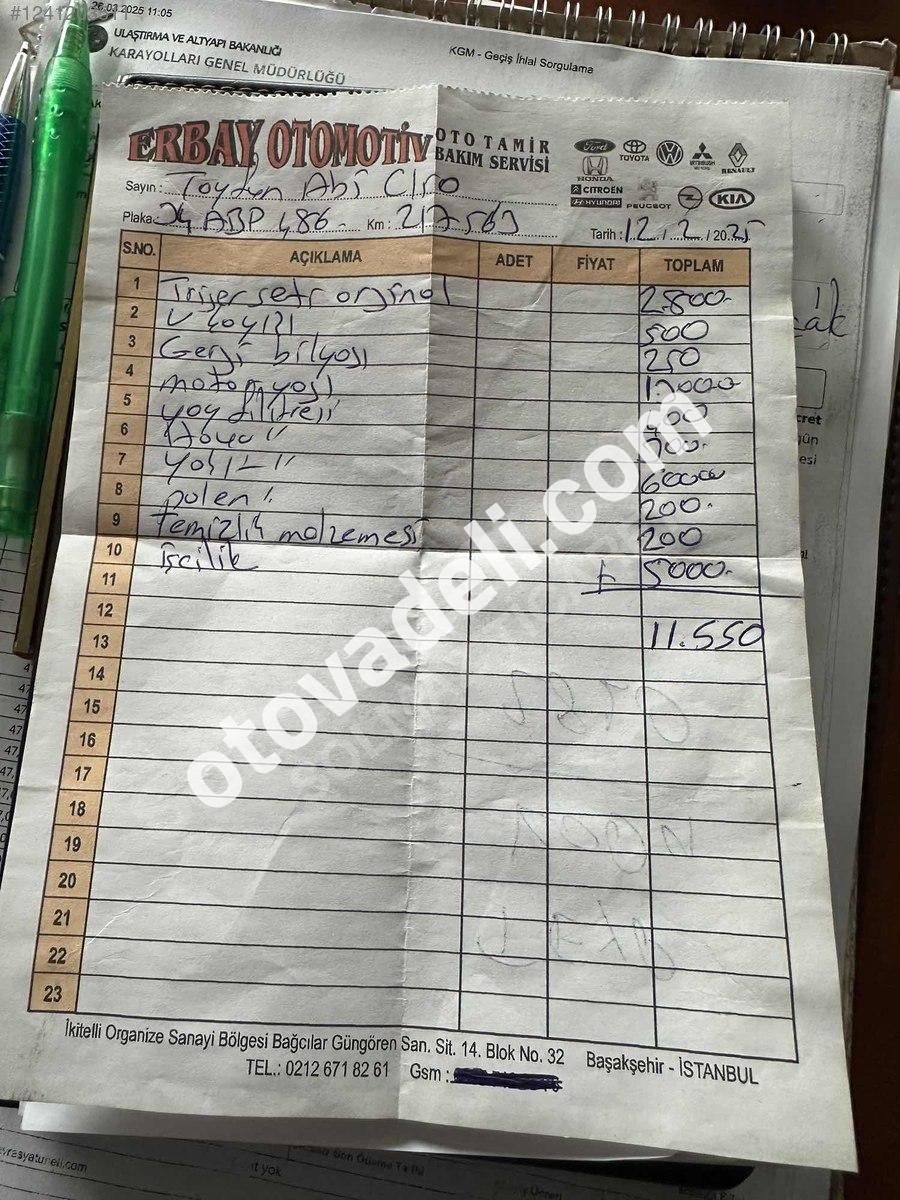 26.03.2025 11:05
ULAŞTIRMA VE ALTYAPI BAKANLIĞI
KARAYOLLARI GENEL MÜDÜRLÜĞÜ
KGM - Geçiş İhlal Sorgulama
ERBAY OTOMOTİV
OTO TAMİR
BAKIM SERVİSİ
Ford TOYOTA RENAULT
HONDA
CITROËN
HYUNDAI PEUGEOT KIA
Sayın : Abi Clio
Plaka: 34 ABP 486 Km : 217563 Tarih : 12 / 2 / 20 25
S.NO. AÇIKLAMA ADET FİYAT TOPLAM
1 Triger seti orginal 2.800-
2 V kayışı 500
3 Gergi bilyası 250
4 motor yağı
5 yağ filitresi
6
7
8 polen " 200-
9 temizlik malzemesi 200
10 işcilik + 5000-
11
12
13 11.550
14
15
16
17
18
19
20
21
22
23
otovadeli.com
İkitelli Organize Sanayi Bölgesi Bağcılar Güngören San. Sit. 14. Blok No. 32 Başakşehir - İSTANBUL
TEL.: 0212 671 82 61 Gsm :